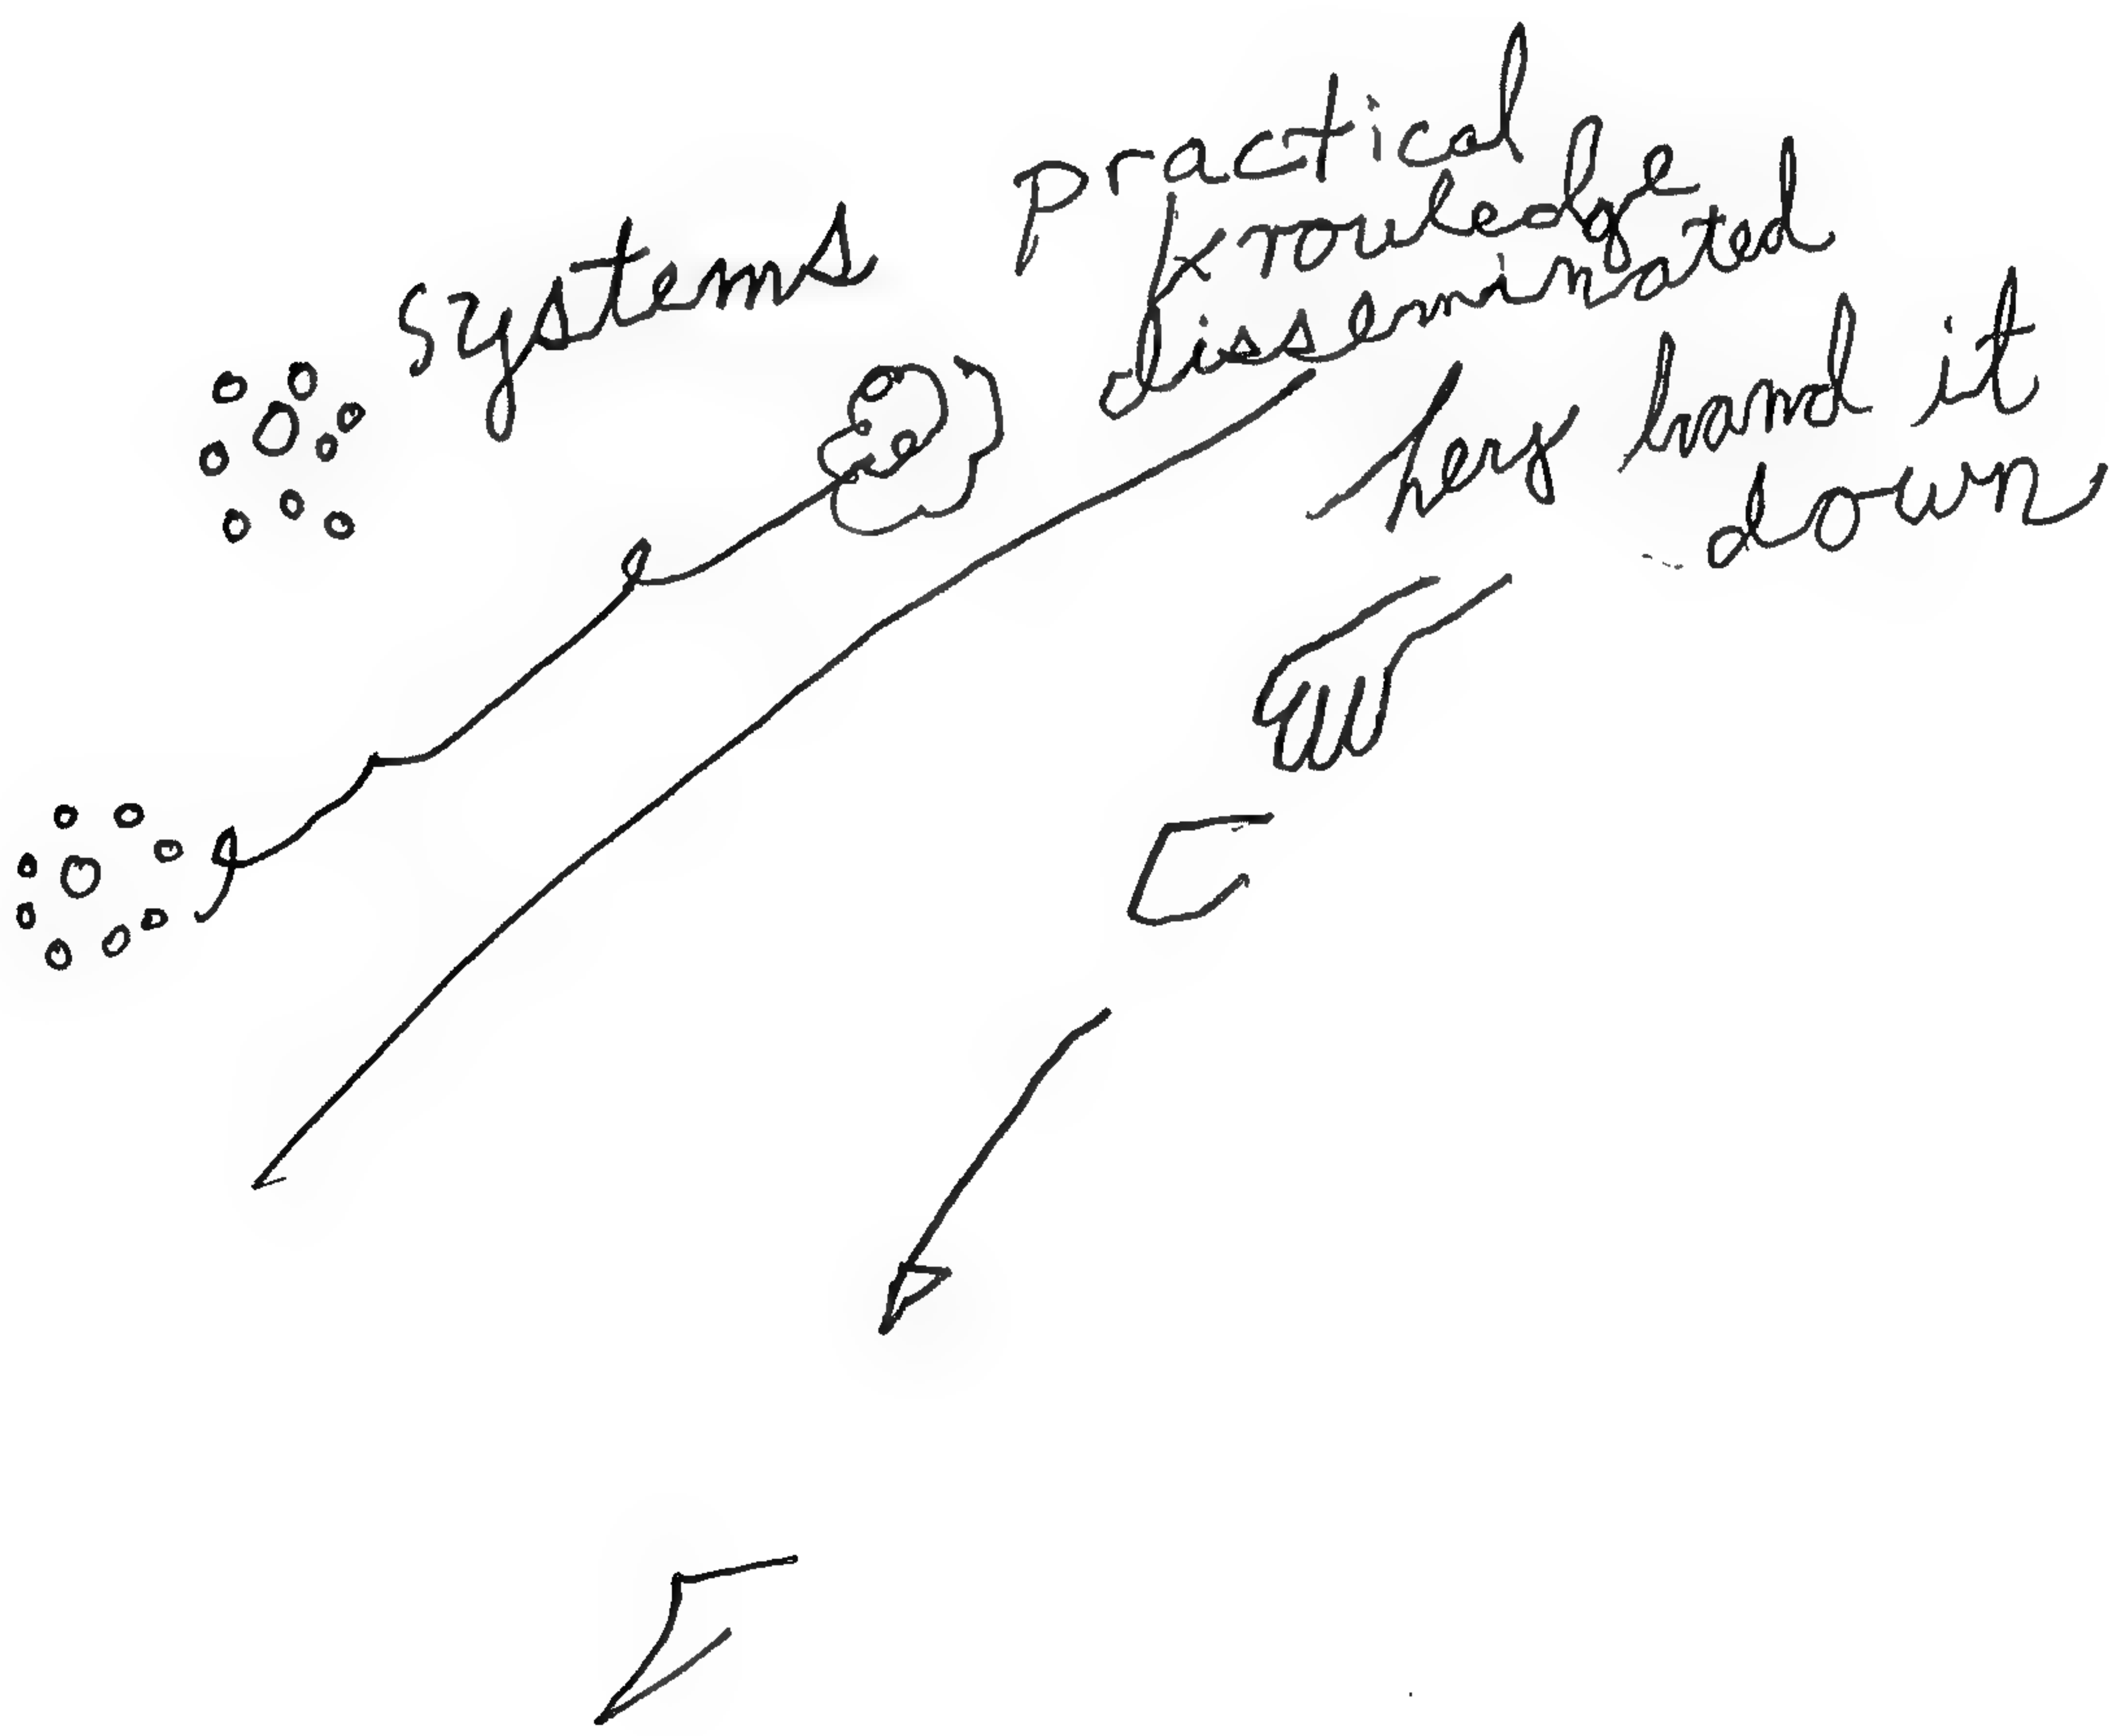 systems
Practical
knowledge
disseminated
they hand it
down